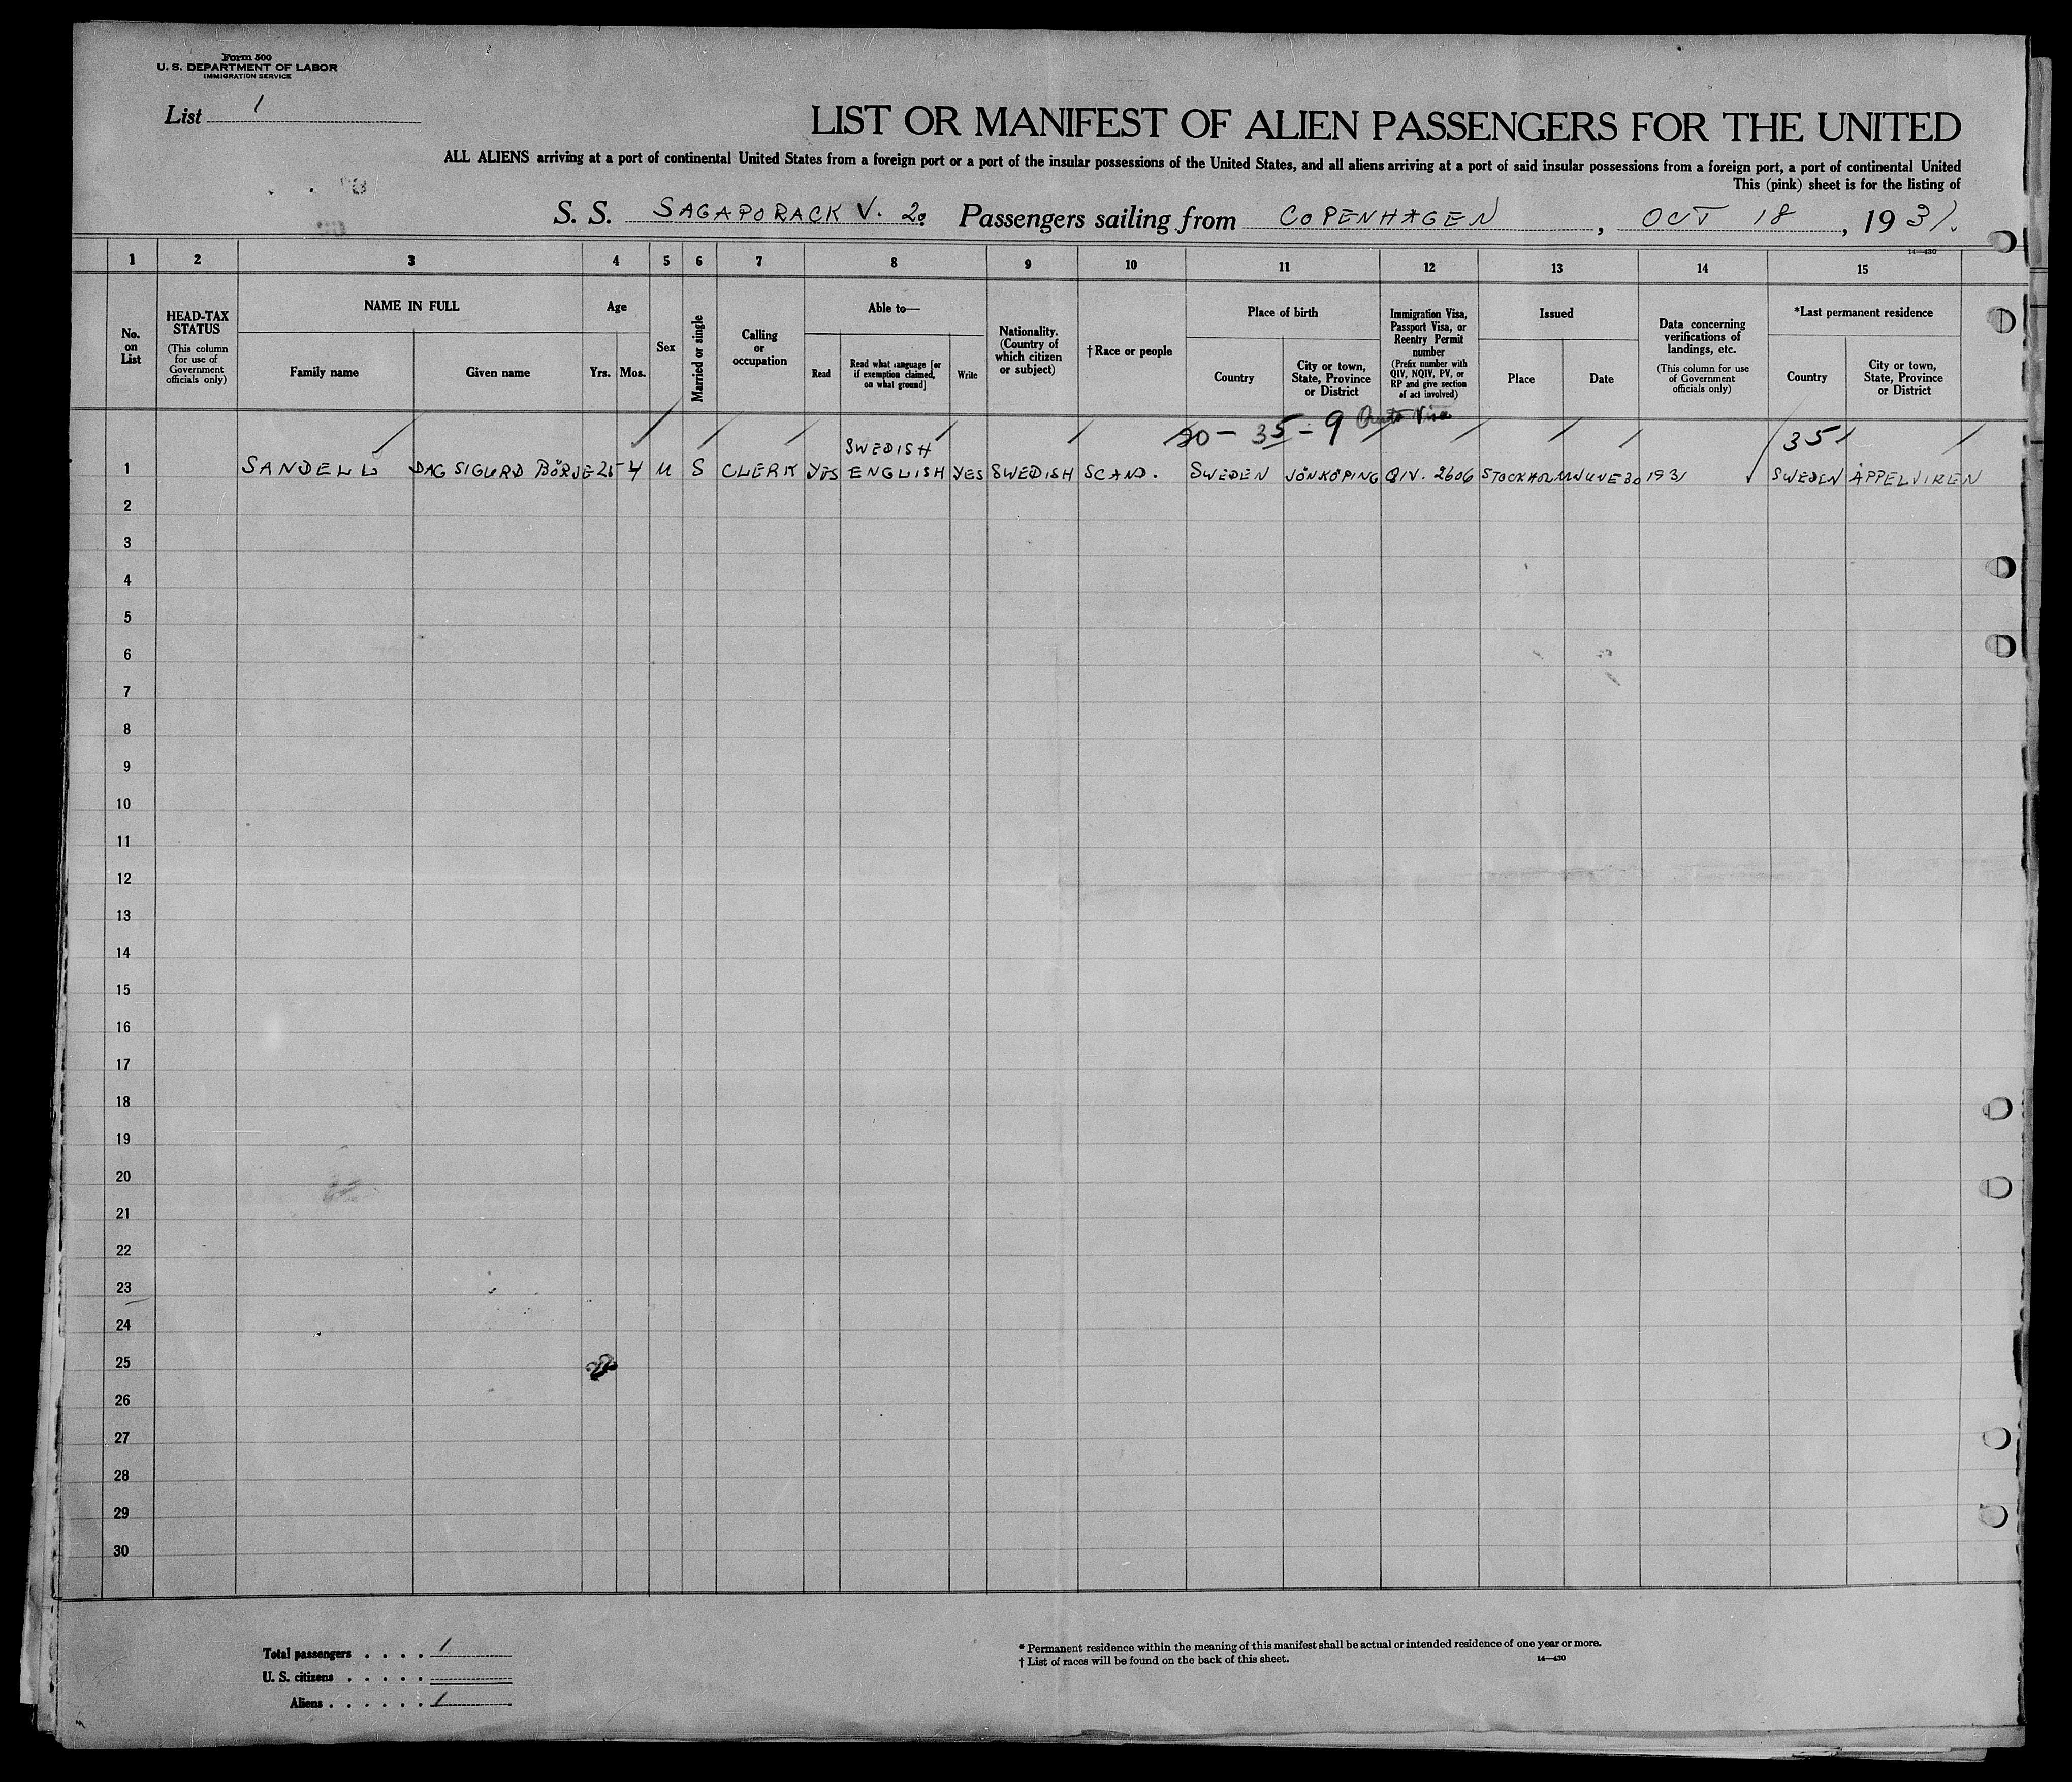 Form 500
U. S. DEPARTMENT OF LABOR
IMMIGRATION SERVICE
List 1
LIST OR MANIFEST OF ALIEN PASSENGERS FOR THE UNITED
ALL ALIENS arriving at a port of continental United States from a foreign port or a port of the insular possessions of the United States, and all aliens arriving at a port of said insular possessions from a foreign port, a port of continental United
This (pink) sheet is for the listing of
S. S. SAGAPORACK V. 20 Passengers sailing from COPENHAGEN, OCT 18, 1931.
14—430
1 2 3 4 5 6 7 8 9 10 11 12 13 14 15
No. on List
HEAD-TAX STATUS
(This column for use of Government officials only)
NAME IN FULL
Family name
Given name
Age
Yrs.
Mos.
Sex
Married or single
Calling or occupation
Able to—
Read
Read what language [or if exemption claimed, on what ground]
Write
Nationality. (Country of which citizen or subject)
†Race or people
Place of birth
Country
City or town, State, Province or District
Immigration Visa, Passport Visa, or Reentry Permit number
(Prefix number with QIV, NQIV, PV, or RP and give section of act involved)
Issued
Place
Date
Data concerning verifications of landings, etc.
(This column for use of Government officials only)
*Last permanent residence
Country
City or town, State, Province or District
35-9
SWEDISH
35
1 SANDELL DAG SIGURD BÖRJE 25 4 M S CLERK YES ENGLISH YES SWEDISH SCAND. SWEDEN JÖNKÖPING QIV. 2606 STOCKHOLM JUNE 30 1931 SWEDEN ÄPPELVIKEN
2
3
4
5
6
7
8
9
10
11
12
13
14
15
16
17
18
19
20
21
22
23
24
25
26
27
28
29
30
Total passengers . . . . 1
U. S. citizens . . . . .
Aliens . . . . . . 1
* Permanent residence within the meaning of this manifest shall be actual or intended residence of one year or more.
† List of races will be found on the back of this sheet.
14—430